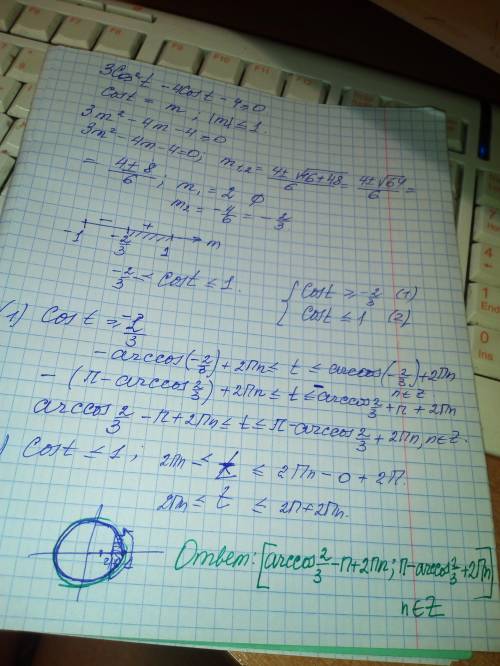 3cos²t - 4cost - 4 = 0
cost = m ; |m| ≤ 1.
3m² - 4m - 4 = 0
3m² - 4m - 4 = 0; m₁,₂ = (4 ± √(16+48))/6 = (4 ± √64)/6 =
= (4 ± 8)/6 ; m₁ = 2 ∅
m₂ = -4/6 = -2/3
- +
-1 -2/3 1 m
-2/3 ≤ cost ≤ 1.
{ cost ≥ -2/3 (1)
{ cost ≤ 1 (2)
(1) cost ≥ -2/3
-arccos(-2/3) + 2πn ≤ t ≤ arccos(-2/3) + 2πn
n∈Z
-(π - arccos 2/3) + 2πn ≤ t ≤ -arccos 2/3 + π + 2πn
arccos 2/3 - π + 2πn ≤ t ≤ π - arccos 2/3 + 2πn, n∈Z.
) cost ≤ 1 ; 2πn ≤ t ≤ 2πn - 0 + 2π.
2πn ≤ t ≤ 2π + 2πn.
Ответ: [arccos 2/3 - π + 2πn ; π - arccos 2/3 + 2πn]
n∈Z